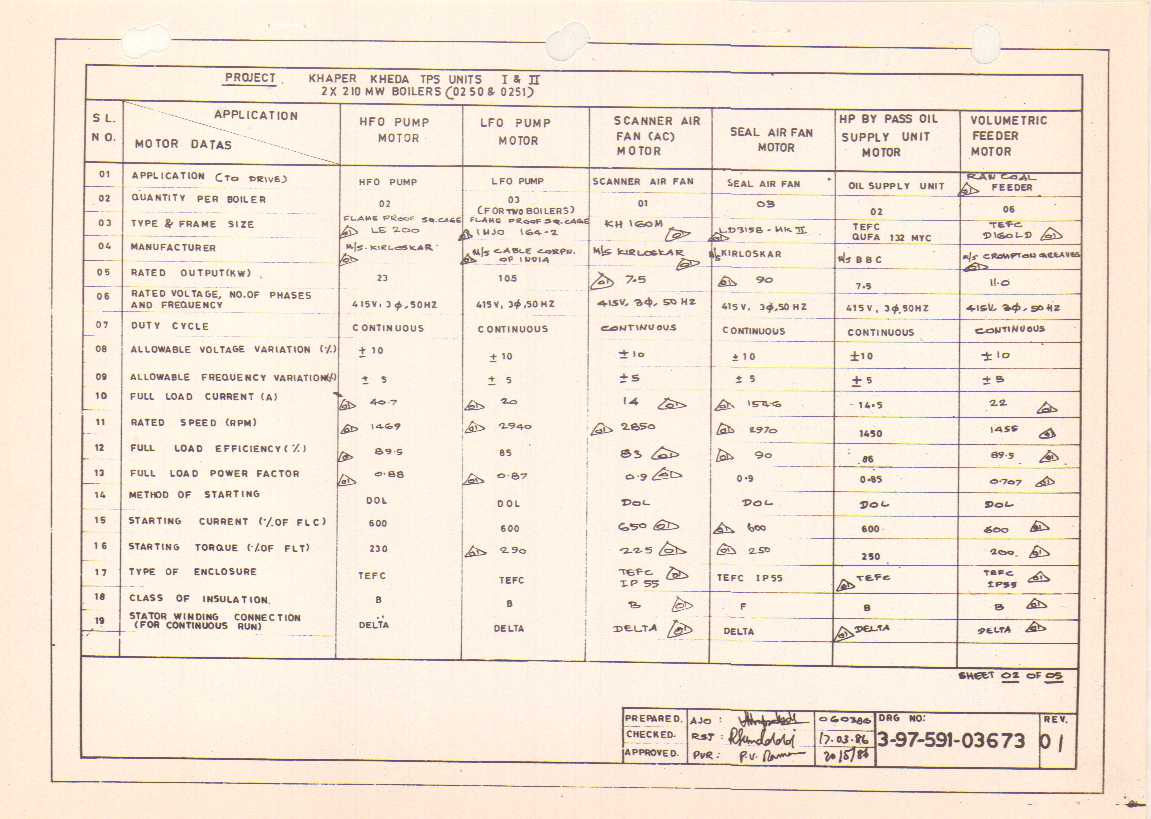 PROJECT. KHAPER KHEDA TPS UNITS I & II
2 X 210 MW BOILERS (0250 & 0251)
SL. NO. APPLICATION MOTOR DATAS HFO PUMP MOTOR LFO PUMP MOTOR SCANNER AIR FAN (AC) MOTOR SEAL AIR FAN MOTOR HP BY PASS OIL SUPPLY UNIT MOTOR VOLUMETRIC FEEDER MOTOR
01 APPLICATION (TO DRIVE) HFO PUMP LFO PUMP SCANNER AIR FAN SEAL AIR FAN OIL SUPPLY UNIT RAW COAL 01 FEEDER
02 QUANTITY PER BOILER 02 03 (FOR TWO BOILERS) 01 03 02 06
03 TYPE & FRAME SIZE FLAME PROOF SQ.CAGE 01 LE 200 FLAME PROOF SQ.CAGE 01 1MJO 164-2 KH 160M 01 01 LD315B-MK II TEFC QUFA 132 MYC TEFC D160LD 01
04 MANUFACTURER M/S.KIRLOSKAR 01 M/S CABLE CORPN. 01 OF INDIA M/S KIRLOSKAR 01 M/S KIRLOSKAR M/S BBC M/S CROMPTON GREAVES 01
05 RATED OUTPUT(KW) 23 10.5 01 7.5 01 90 7.5 11.0
06 RATED VOLTAGE, NO.OF PHASES AND FREQUENCY 415V, 3φ,50HZ 415V, 3φ,50HZ 415V, 3φ, 50 HZ 415V, 3φ,50HZ 415V, 3φ,50HZ 415V, 3φ, 50HZ
07 DUTY CYCLE CONTINUOUS CONTINUOUS CONTINUOUS CONTINUOUS CONTINUOUS CONTINUOUS
08 ALLOWABLE VOLTAGE VARIATION (%) ± 10 ± 10 ± 10 ± 10 ±10 ± 10
09 ALLOWABLE FREQUENCY VARIATION(%) ± 5 ± 5 ± 5 ± 5 ± 5 ± 5
10 FULL LOAD CURRENT (A) 01 40.7 01 20 14 01 01 154.6 14.5 22 01
11 RATED SPEED (RPM) 01 1469 01 2940 01 2850 01 2970 1450 1455 01
12 FULL LOAD EFFICIENCY (%) 01 89.5 85 83 01 01 90 86 89.5 01
13 FULL LOAD POWER FACTOR 01 0.88 01 0.87 0.9 01 0.9 0.85 0.707 01
14 METHOD OF STARTING DOL DOL DOL DOL DOL DOL
15 STARTING CURRENT (% OF FLC) 600 600 650 01 01 600 600 600 01
16 STARTING TORQUE (% OF FLT) 230 01 290 225 01 01 250 250 200 01
17 TYPE OF ENCLOSURE TEFC TEFC TEFC IP 55 01 TEFC IP55 01 TEFC TEFC IP55 01
18 CLASS OF INSULATION. B B B 01 F B B 01
19 STATOR WINDING CONNECTION (FOR CONTINUOUS RUN) DELTA DELTA DELTA 01 DELTA 01 DELTA DELTA 01
SHEET 02 OF 05
PREPARED. AJO : 060386 DRG NO: REV.
CHECKED. RSJ : 17.03.86 3-97-591-03673 01
APPROVED. PVR : P.V. 20/5/86